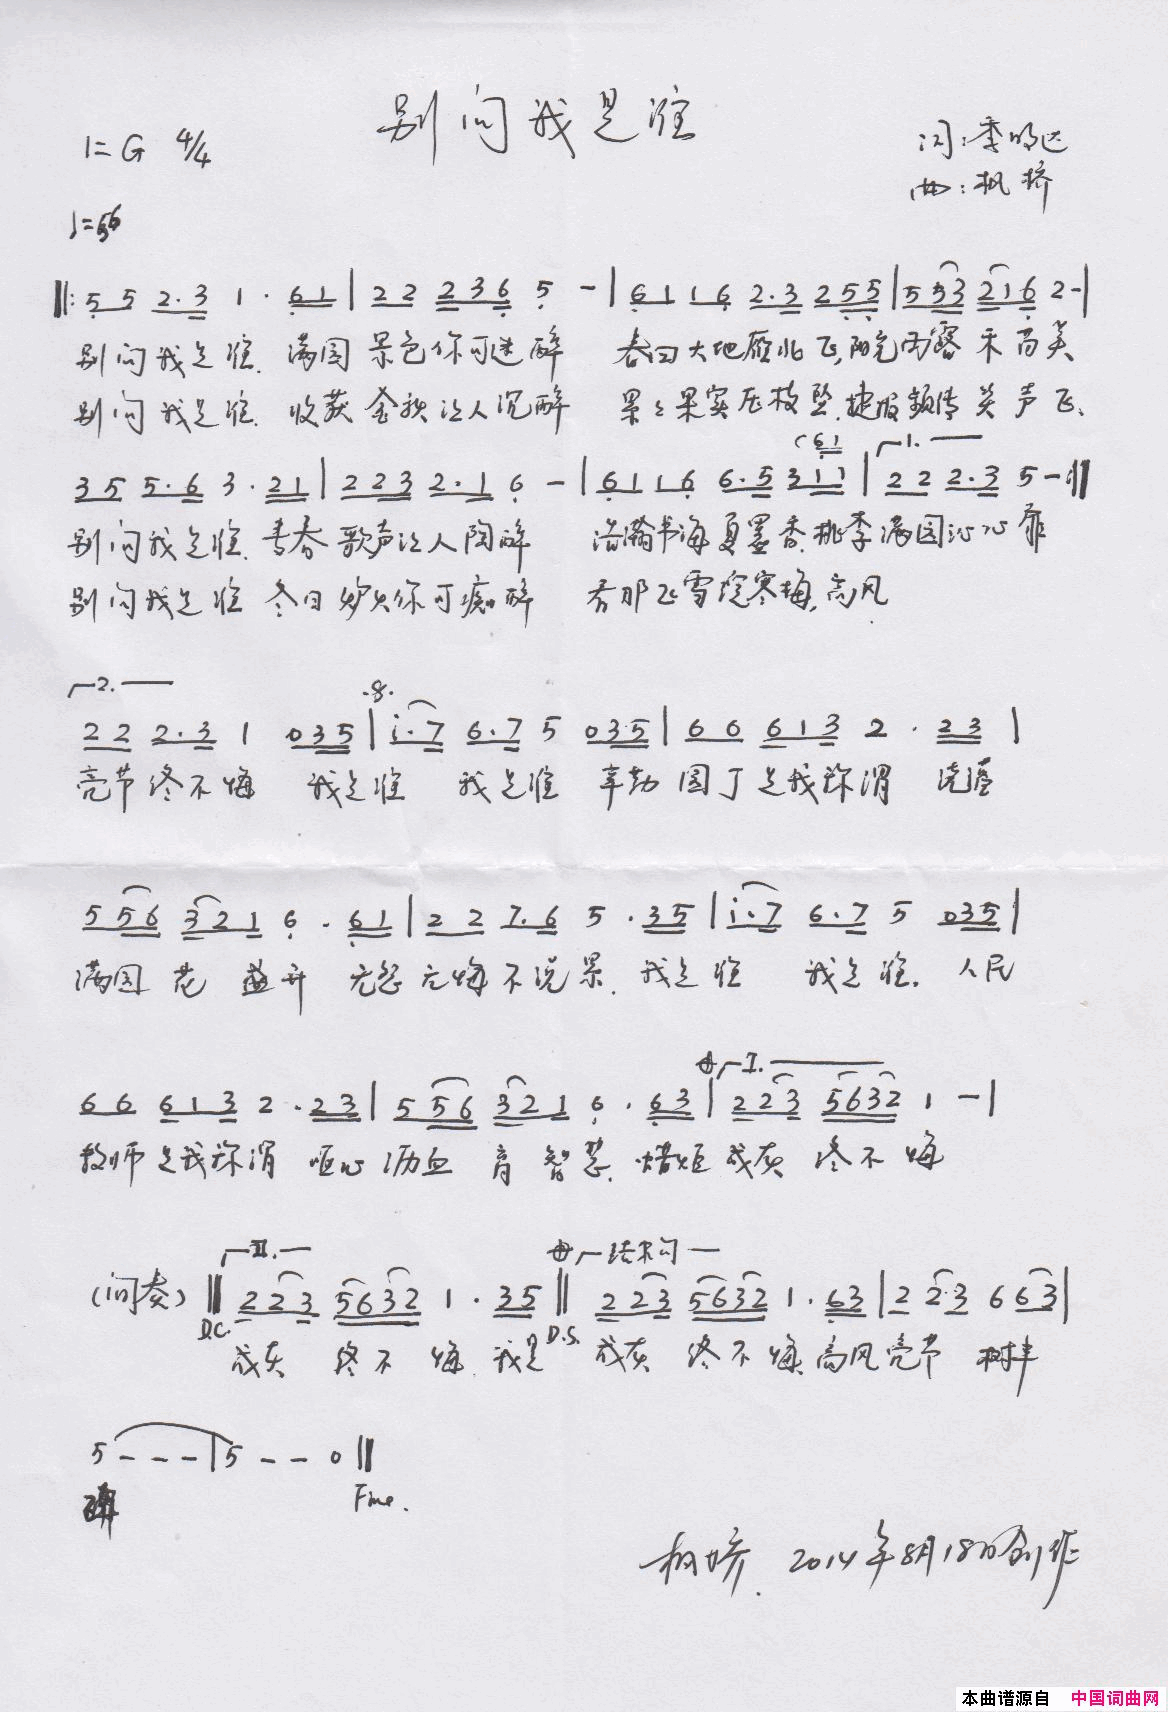 别问我是谁
1=G 4/4
词:李明达
曲:枫桥
♩=56
‖: 5 5 2·3 1· 61 | 22 236 5 - | 61 16 2·3 255 | 553 216 2 - |
别问我是谁.满园景色你可迷醉 春回大地雁北飞,阳光雨露禾苗美
别问我是谁.收获金秋让人沉醉 累累果实压枝坠,捷报频传笑声飞.
(61 1.
35 5·6 3·21 | 223 2·1 6 - | 61 16 6·5 311 | 22 2·3 5 - :‖
别问我是谁.青春歌声让人陶醉 浩瀚书海夏墨香,桃李满园沁心扉
别问我是谁 冬日炉火你可痴醉 看那飞雪绽寒梅,高风
2. 𝄋
22 2·3 1 035 | i·7 6·7 5 035 | 66 613 2·23 |
亮节终不悔 我是谁 我是谁 辛勤园丁是我称谓 浇灌
556 321 6·61 | 22 7·6 5·35 | i·7 6·7 5 035 |
满园花盛开 无怨无悔不说累.我是谁 我是谁.人民
𝄌 II.
66 613 2·23 | 556 321 6·63 | 223 5632 1 - |
教师是我称谓 呕心沥血育智慧.蜡炬成灰终不悔
III. 𝄌 结束句
(间奏) ‖ 223 5632 1·35 ‖ 223 5632 1·63 | 223 663 |
D.C. D.S.
成灰终不悔 我是 成灰终不悔,高风亮节树丰
5 - - - | 5 - - 0 ‖
碑 Fine.
枫桥. 2014年8月18日创作
本曲谱源自 中国词曲网